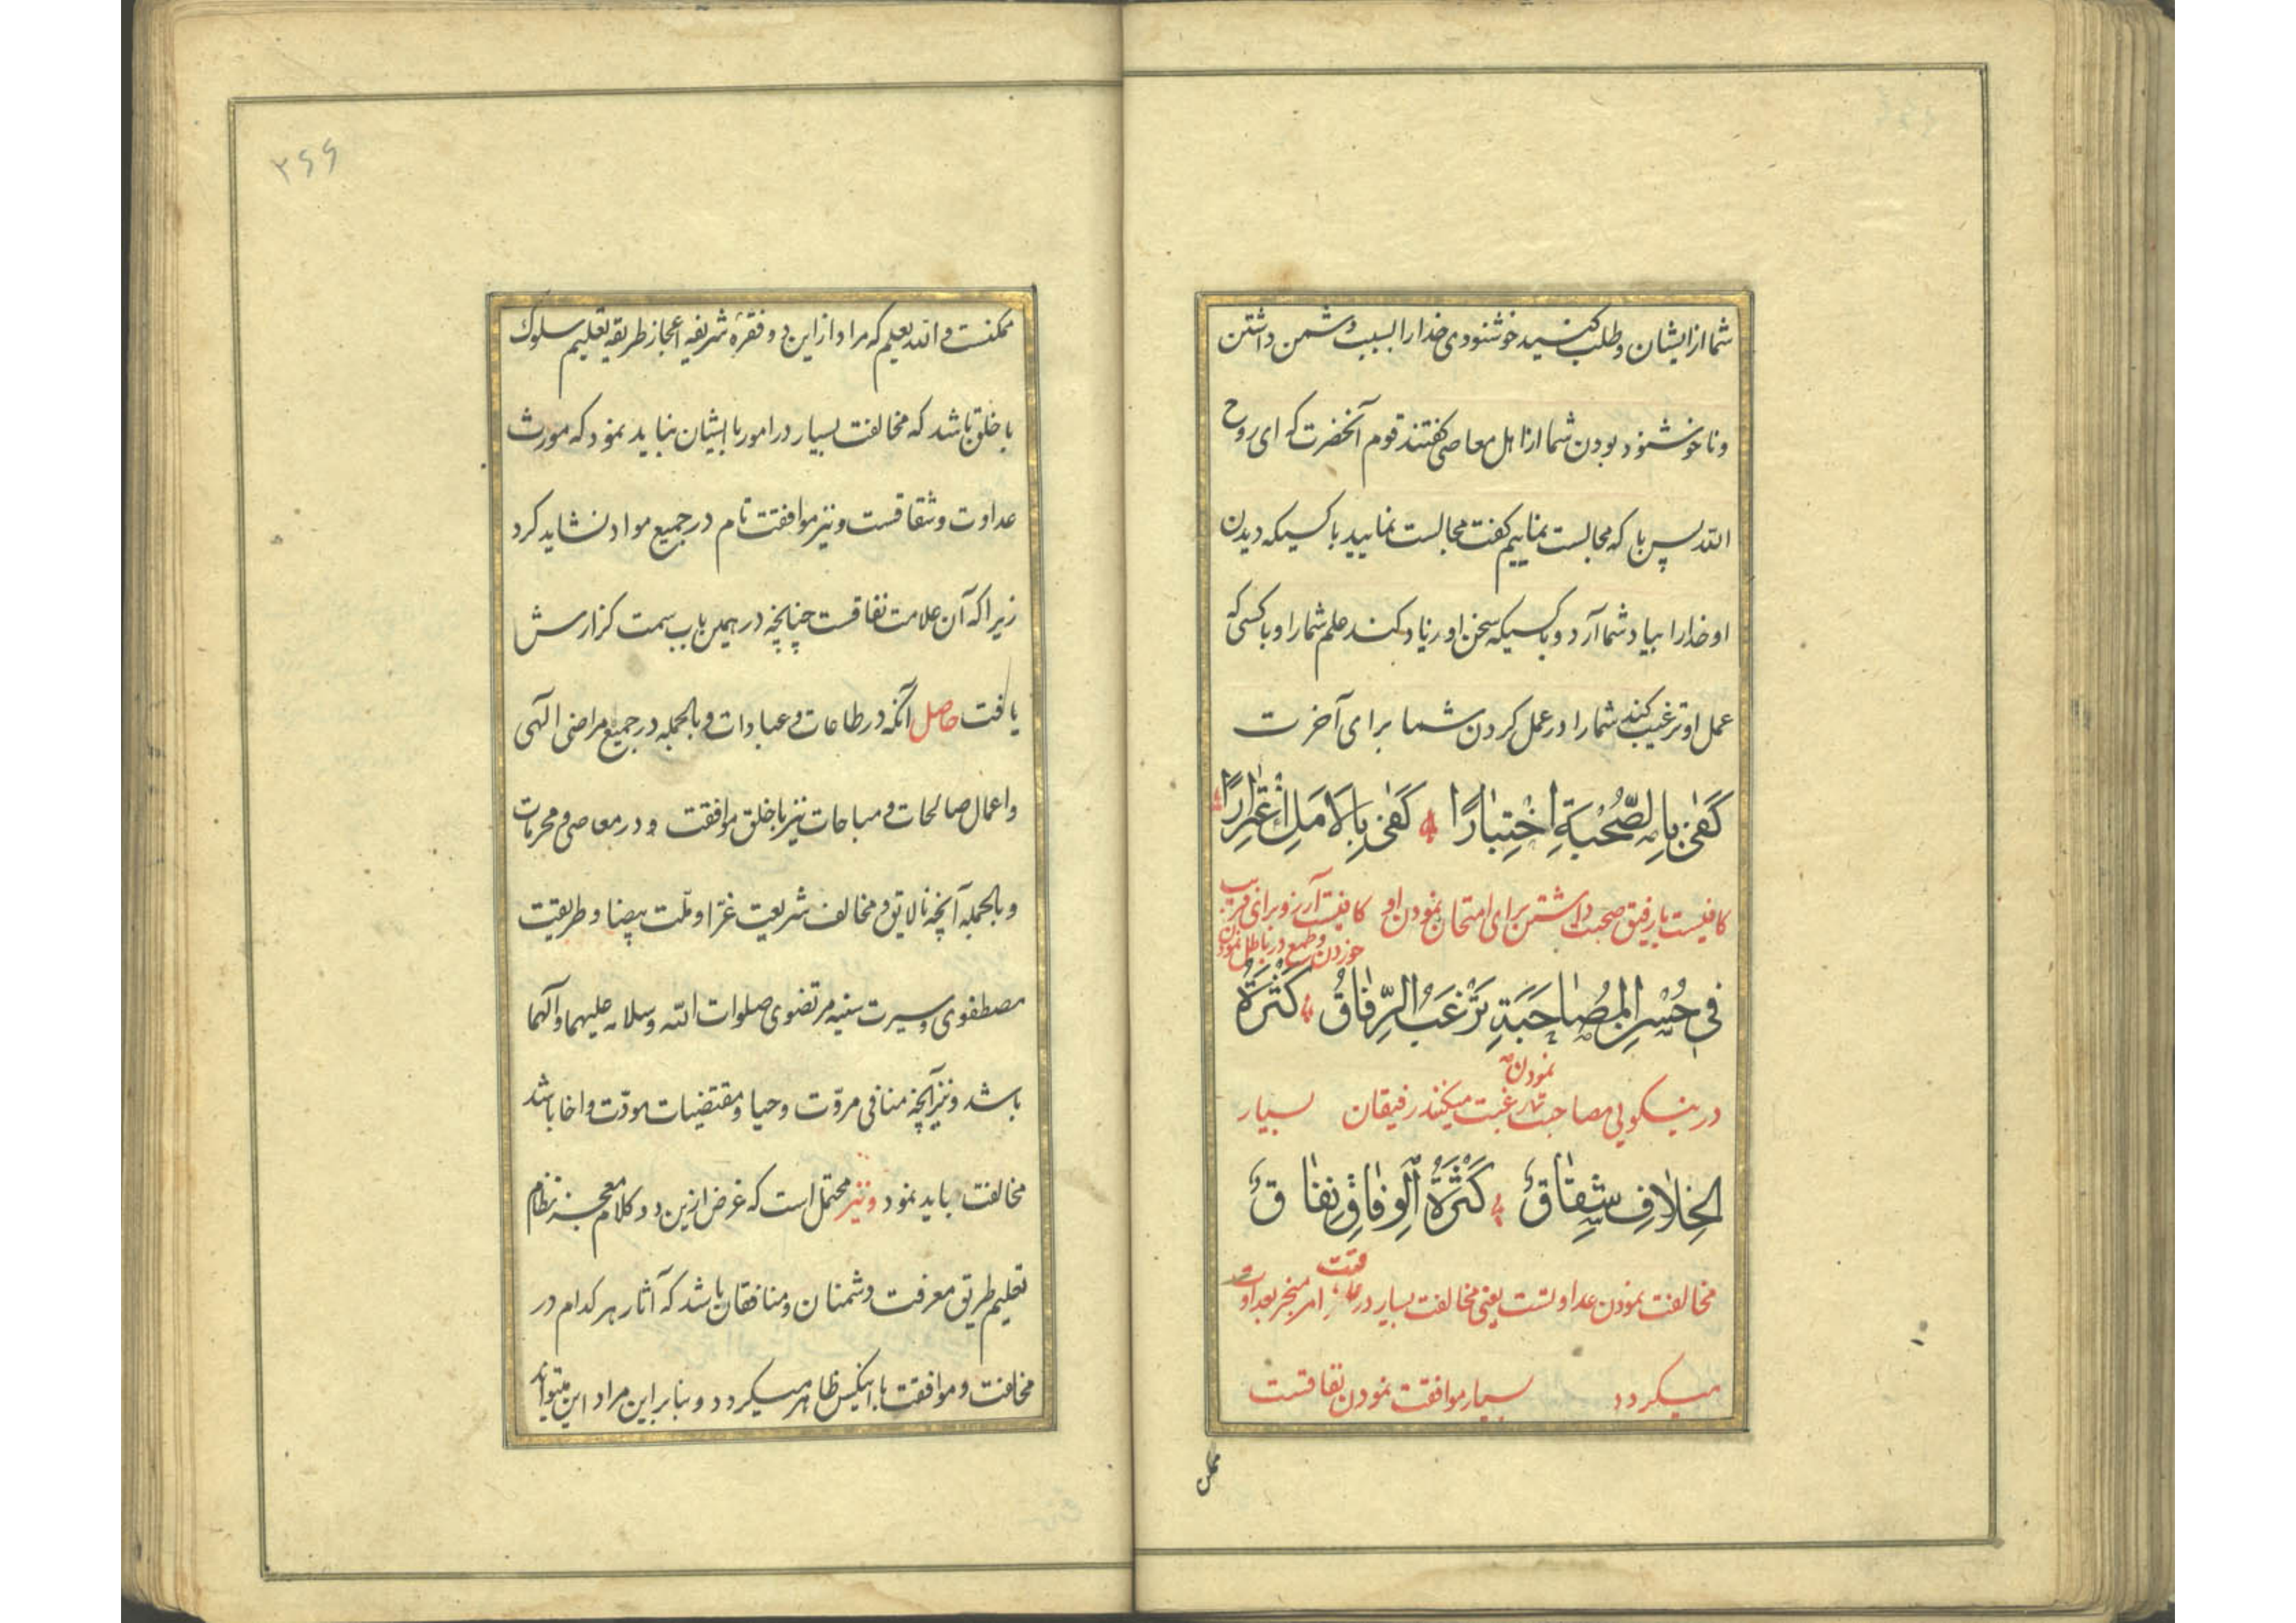 شما از ایشان و طلب کنید خوشنودی خدا را بسبب دشمن داشتن
و ناخوشنود بودن شما از اهل معاصی گفتند قوم آنحضرت که ای روح
الله پس با که مجالست نماییم گفت مجالست نمایید با کسیکه دیدن
او خدا را بیاد شما آرد و با کسیکه سخن او زیاد کند علم شما را و با کسی که
عمل او ترغیب کند شما را در عمل کردن شما برای آخرت
كَفىٰ بِالصُّحْبَةِ اخْتِبٰارًا كَفىٰ بِالاَمَلِ اغْتِرٰارًا
کافیست با رفیق صحبت داشتن برای امتحان نمودن او کافیست آرزو برای فریب
خوردن و طمع در باطل نمودن
فی حُسْنِ المُصٰاحَبَةِ تَرْغَبُ الرِّفٰاقُ كَثْرَةُ
در نیکویی مصاحبت نمودن رغبت میکنند رفیقان بسیار
الخِلٰافِ شِقٰاقٌ كَثْرَةُ الوِفٰاقِ نِفٰاقٌ
مخالفت نمودن عداوتست یعنی مخالفت بسیار در امر منجر بعداوت
میکردد بسیار موافقت نمودن نفاقست
ممکن
۲۶۶
ممکنست و الله یعلم که مراد از این دو فقره شریفه اعجاز طریقه تعلیم سلوک
با خلق باشد که مخالفت بسیار در امور با ایشان نباید نمود که مورث
عداوت و شقاقست و نیز موافقت تام در جمیع مواد نشاید کرد
زیرا که آن علامت نفاقست چنانچه در همین باب سمت گزارش
یافت حاصل آنکه در طاعات و عبادات و بالجمله در جمیع مراضی الهی
و اعمال صالحات و مباحات نیز با خلق موافقت و در معاصی و محرمات
و بالجمله آنچه نالایق و مخالف شریعت غرّا و ملّت بیضا و طریقت
مصطفوی و سیرت سنیه مرتضوی صلوات الله و سلامه علیهما و آلهما
باشد و نیز آنچه منافی مروّت و حیا و مقتضیات مودّت و اخا باشد
مخالفت باید نمود و نیز محتمل است که غرض ازین دو کلام معجز نظام
تعلیم طریق معرفت دشمنان و منافقان باشد که آثار هر کدام در
مخالفت و موافقت با اینکس ظاهر میکردد و بنابراین مراد این میتواند